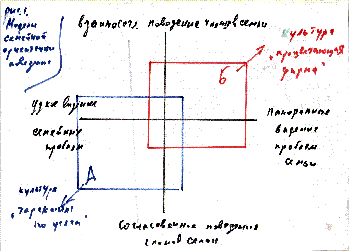 рис. 1.
Модели
семейной
поведения
поведение членов семьи
культура
"процветающая
фирма"
Б
Узкое видение
семейных
проблем
Панорамное
видение
проблем
семьи
Д
культура
"Тараканы
по углам"
Согласованное поведение
членов семьи